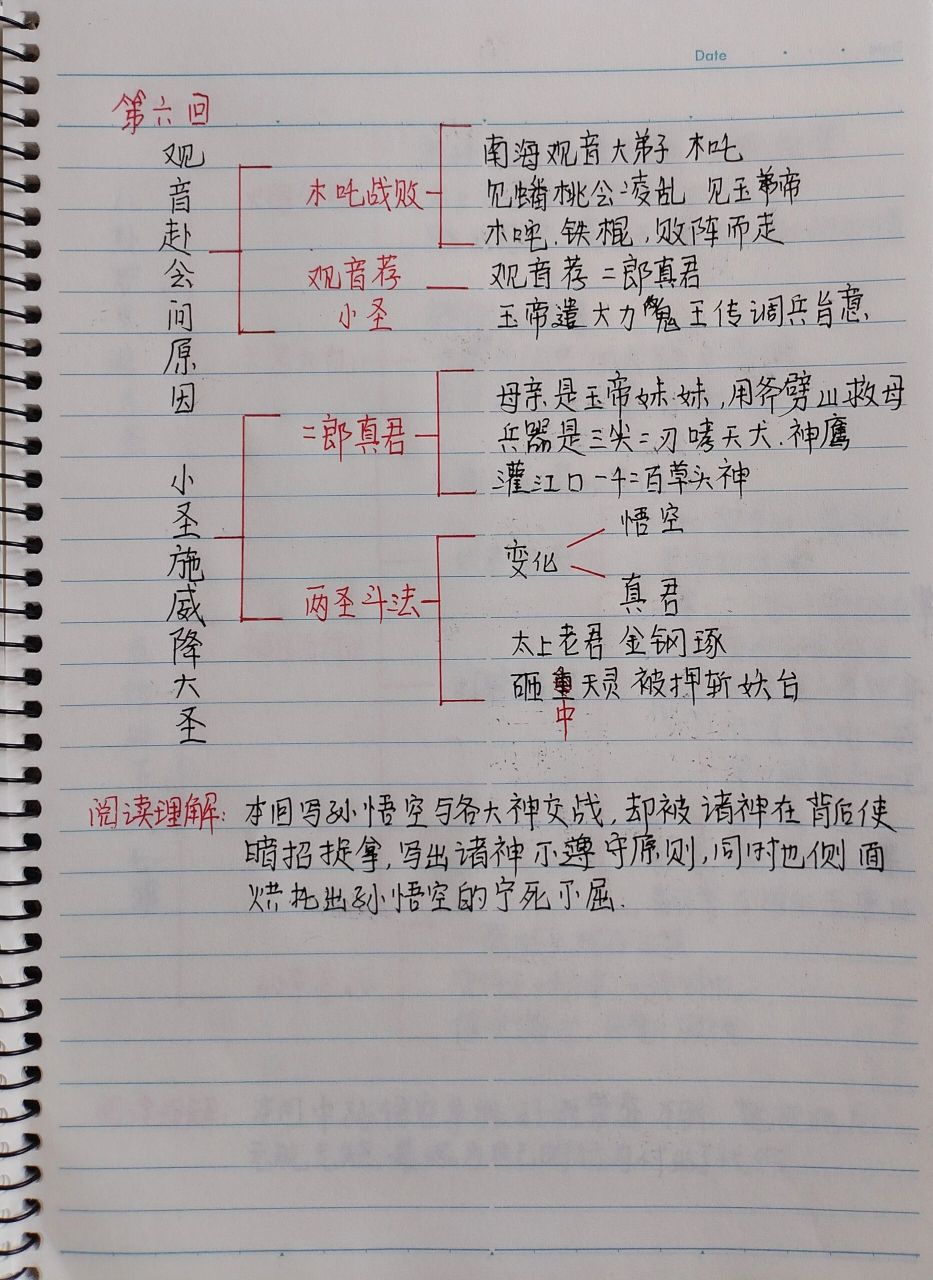 Date
第六回
观音赴会问原因
木吒战败
南海观音大弟子 木吒
见蟠桃会凌乱 见玉帝
木吒.铁棍,败阵而走
观音荐
小圣
观音荐二郎真君
玉帝遣大力鬼王传调兵旨意
小圣施威降大圣
二郎真君
母亲是玉帝妹妹,用斧劈山救母
兵器是三尖二刃哮天犬.神鹰
灌江口一千二百草头神
两圣斗法
变化
悟空
真君
太上老君 金钢琢
砸中天灵 被押斩妖台
阅读理解:本回写孙悟空与各大神交战,却被诸神在背后使
暗招捉拿,写出诸神不遵守原则,同时也侧面
烘托出孙悟空的宁死不屈.